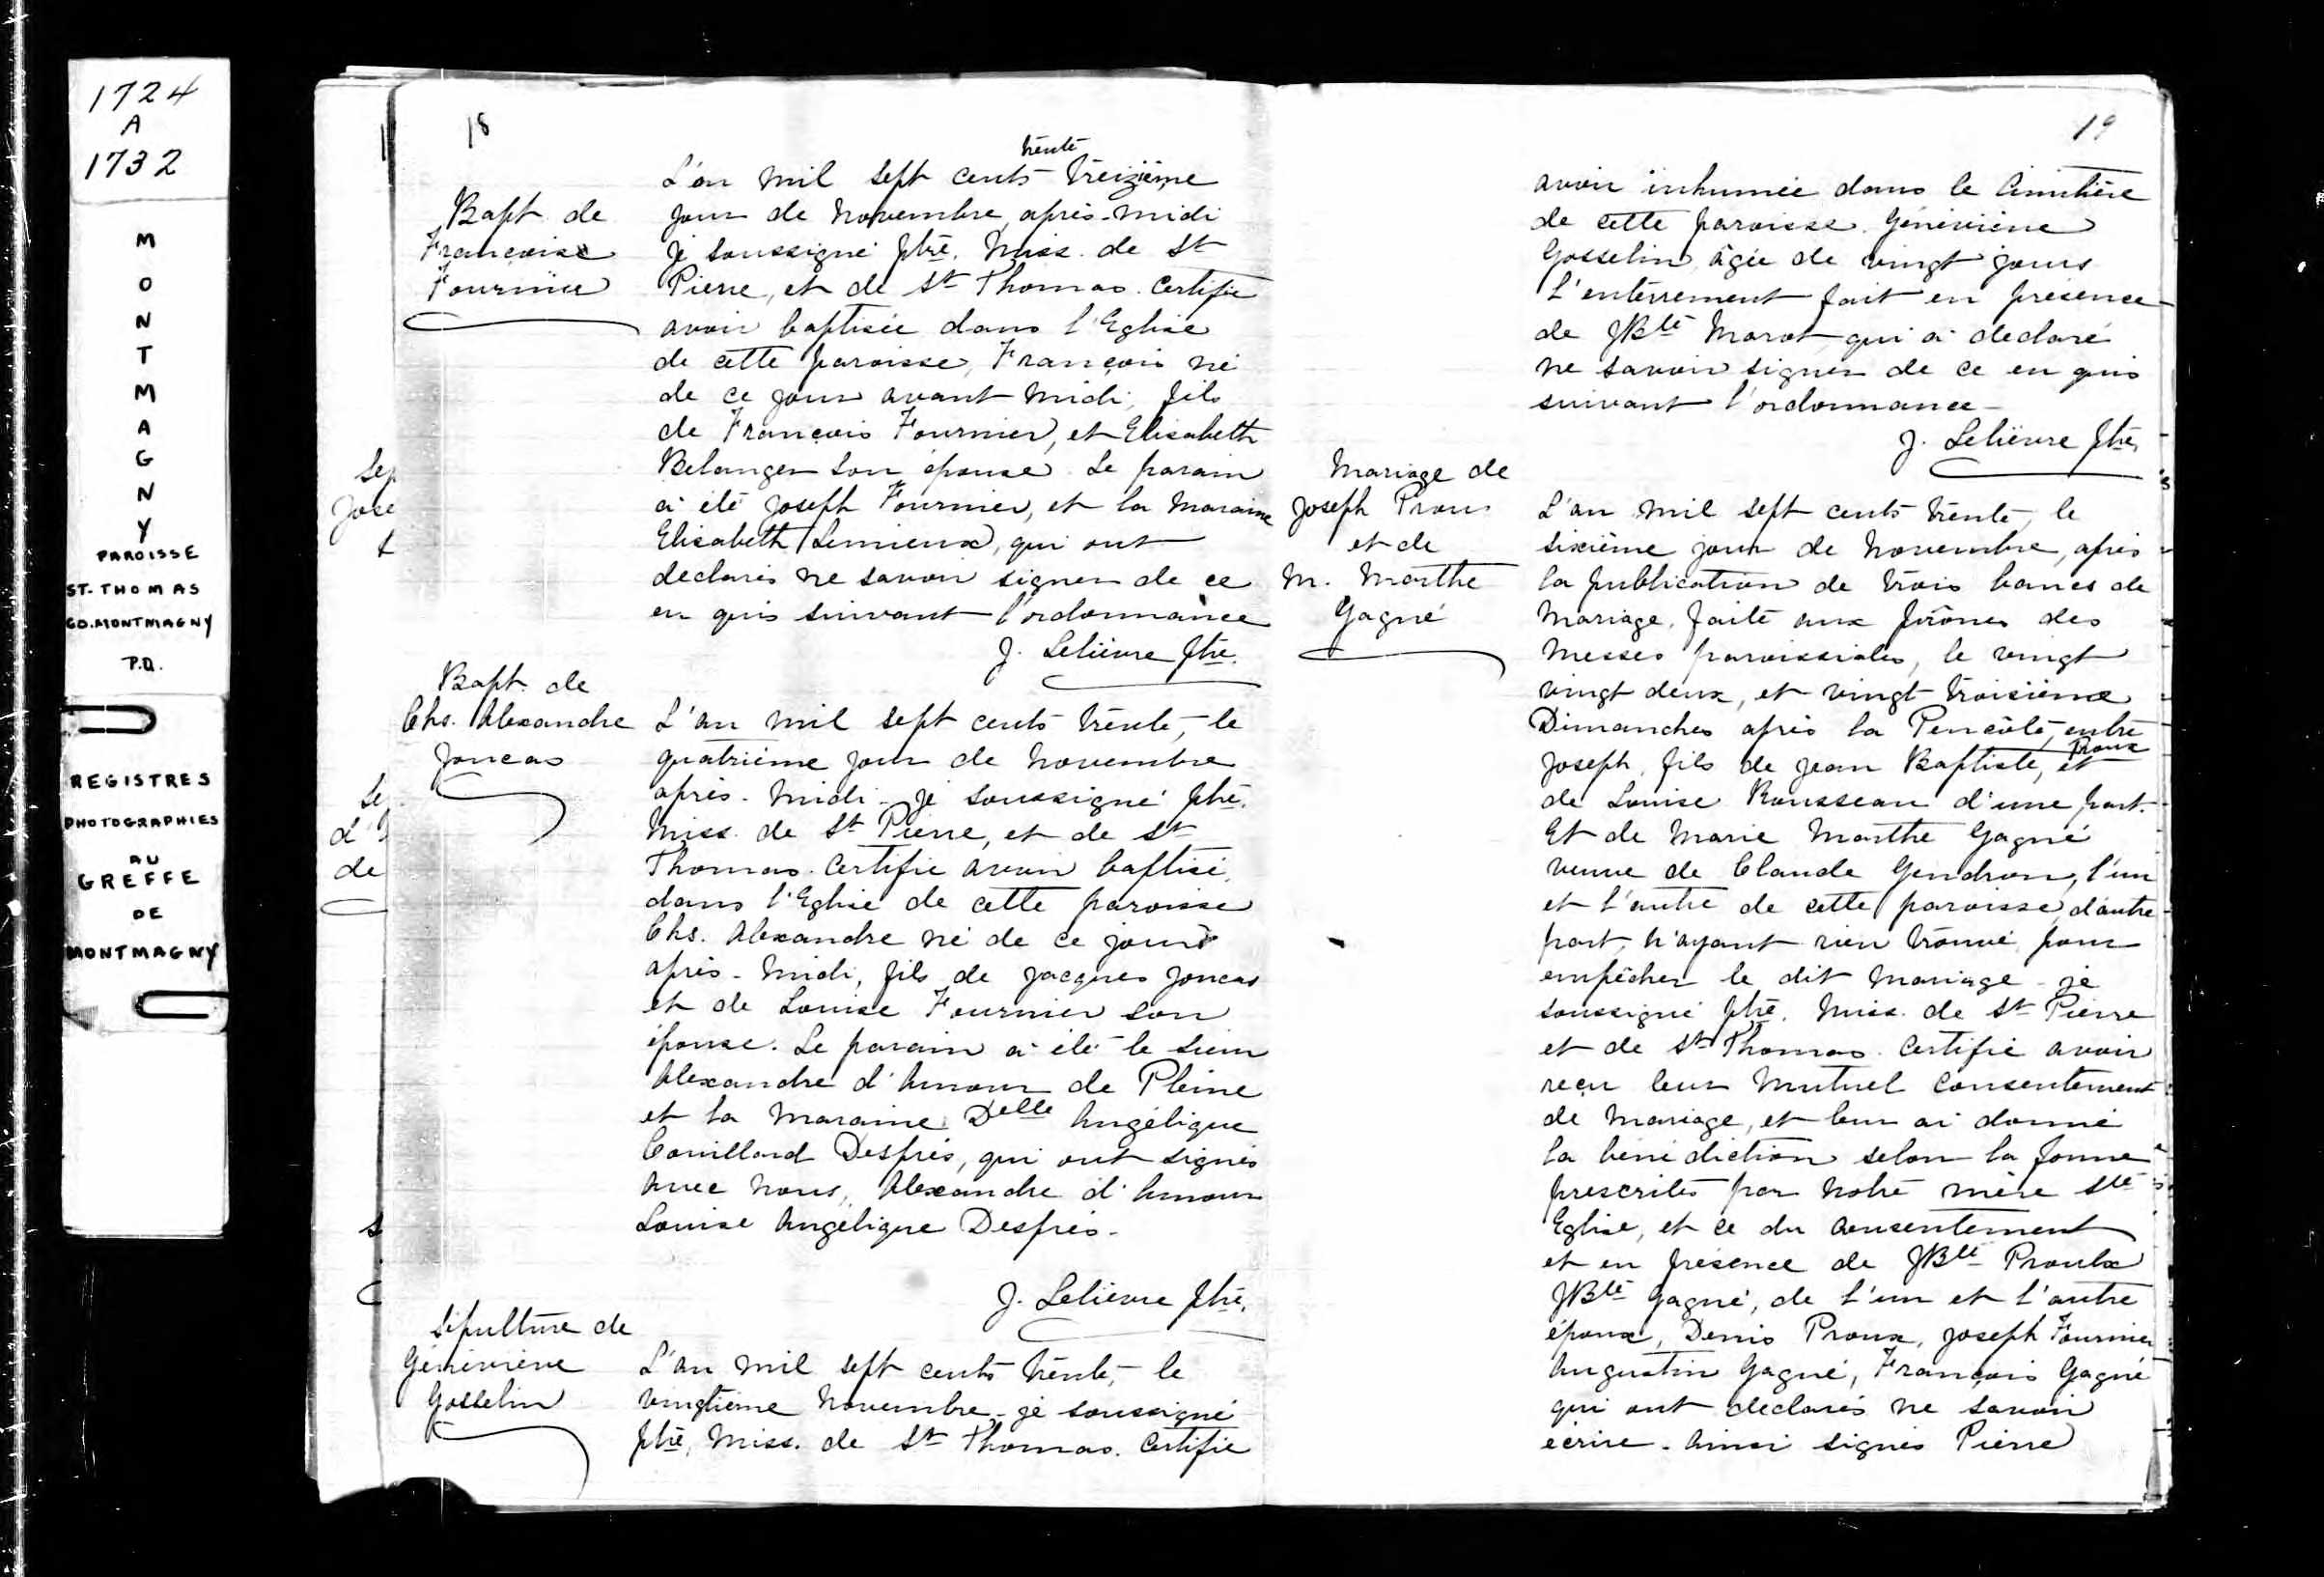 1724
A
1732
M
O
N
T
M
A
G
N
Y
PAROISSE
ST-THOMAS
CO.MONTMAGNY
P.Q.
REGISTRES
PHOTOGRAPHIES
AU
GREFFE
DE
MONTMAGNY
Sep
Jose
t
Se
d'
de
s
18
Bapt. de
Francoise
Fournier
trente
L'an mil sept cents treizième
jour de novembre, après-midi
Je soussigné ptre. Miss. de St
Pierre, et de St Thomas. Certifie
avoir baptisée dans l'Eglise
de cette paroisse, François né
de ce jour avant midi, fils
de François Fournier, et Elisabeth
Belanger son épouse. Le parain
a été Joseph Fournier, et la maraine
Elisabeth Lemieux, qui ont
declarés ne savoir signer de ce
en quis suivant l'ordonnance
J. Lelièvre ptre.
Bapt. de
Chs. Alexandre
Joncas
L'an mil sept cents trente, le
quatrième jour de novembre
après-midi - je soussigné ptre.
Miss. de St Pierre, et de St
Thomas. Certifie avoir baptisé
dans l'Eglise de cette paroisse
Chs. Alexandre né de ce jour
après-midi, fils de Jacques Joncas
et de Louise Fournier son
épouse. Le parain a été le sieur
Alexandre d'Amour de Pleine
et la Maraine Delle Angélique
Couillard Desprès, qui ont signés
avec nous, Alexandre d'Amour
Louise Angélique Desprès.
J. Lelièvre ptre.
Sépulture de
Géneviève
Gosselin
L'an mil sept cents trente, le
vingtième novembre - je soussigné
ptre, Miss. de St Thomas. Certifie
19
avoir inhumée dans le Cimitière
de cette paroisse. Généviève
Gosselin âgée de vingt jours
L'enterrement fait en présence
de JBte Marot qui a declaré
ne savoir signer de ce en quis
suivant l'ordonnance -
J. Lelièvre ptre,
Mariage de
Joseph Prou
et de
M. Marthe
Gagné
L'an mil sept cents trente, le
sixième jour de novembre, après
la publication de trois bancs de
Mariage, faite aux prônes des
Messes paroissiales, le vingt
vingt deux, et vingt troisième
Dimanches après la Pencôte, entre
Proux
Joseph, fils de Jean Baptiste, et
de Louise Rousseau d'une part.
Et de Marie Marthe Gagné
veuve de Claude Gendron, l'un
et l'autre de cette paroisse d'autre
part, n'ayant rien trouvé pour
empêcher le dit mariage - je
soussigné ptre. Miss. de St Pierre
et de St Thomas. Certifie avoir
reçu leur mutuel consentement
de mariage, et leur ai donné
la bénédiction selon la forme
prescrites par notre mère Ste
Eglise, et ce du consentement
et en présence de JBte Proulx
JBte Gagné, de l'un et l'autre
époux, Denis Proux, Joseph Fournier
Augustin Gagné, François Gagné
qui ont declarés ne savoir
ecrire - Ainsi signés Pierre